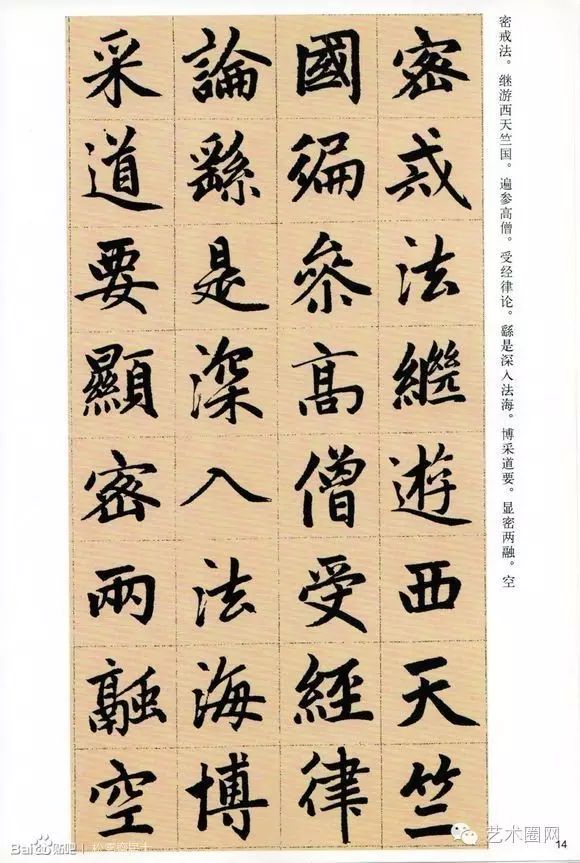 密戒法。继游西天竺国。遍参高僧。受经律论。繇是深入法海。博采道要。显密两融。空
密戒法繼遊西天竺
國徧參高僧受經律
論繇是深入法海博
采道要顯密兩融空
14
Bai贴吧
艺术圈网